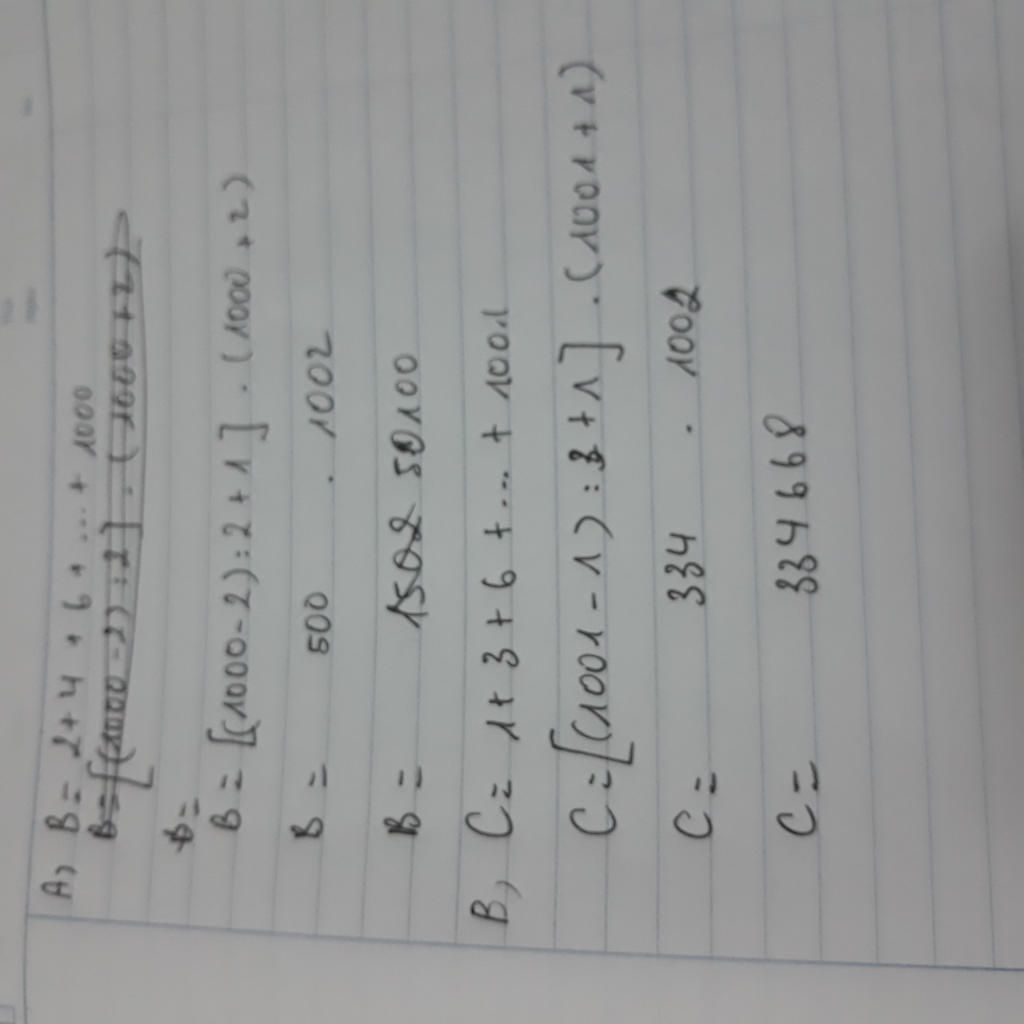 A, B = 2+4+6+...+1000
B=[(1000-2):2].(1000+2)
B=
B=[(1000-2):2+1].(1000+2)
B = 500 . 1002
B = 1502 50100
B, C= 1+3+6+...+1001
C=[(1001-1):3+1].(1001+1)
C= 334 . 1002
C= 334668